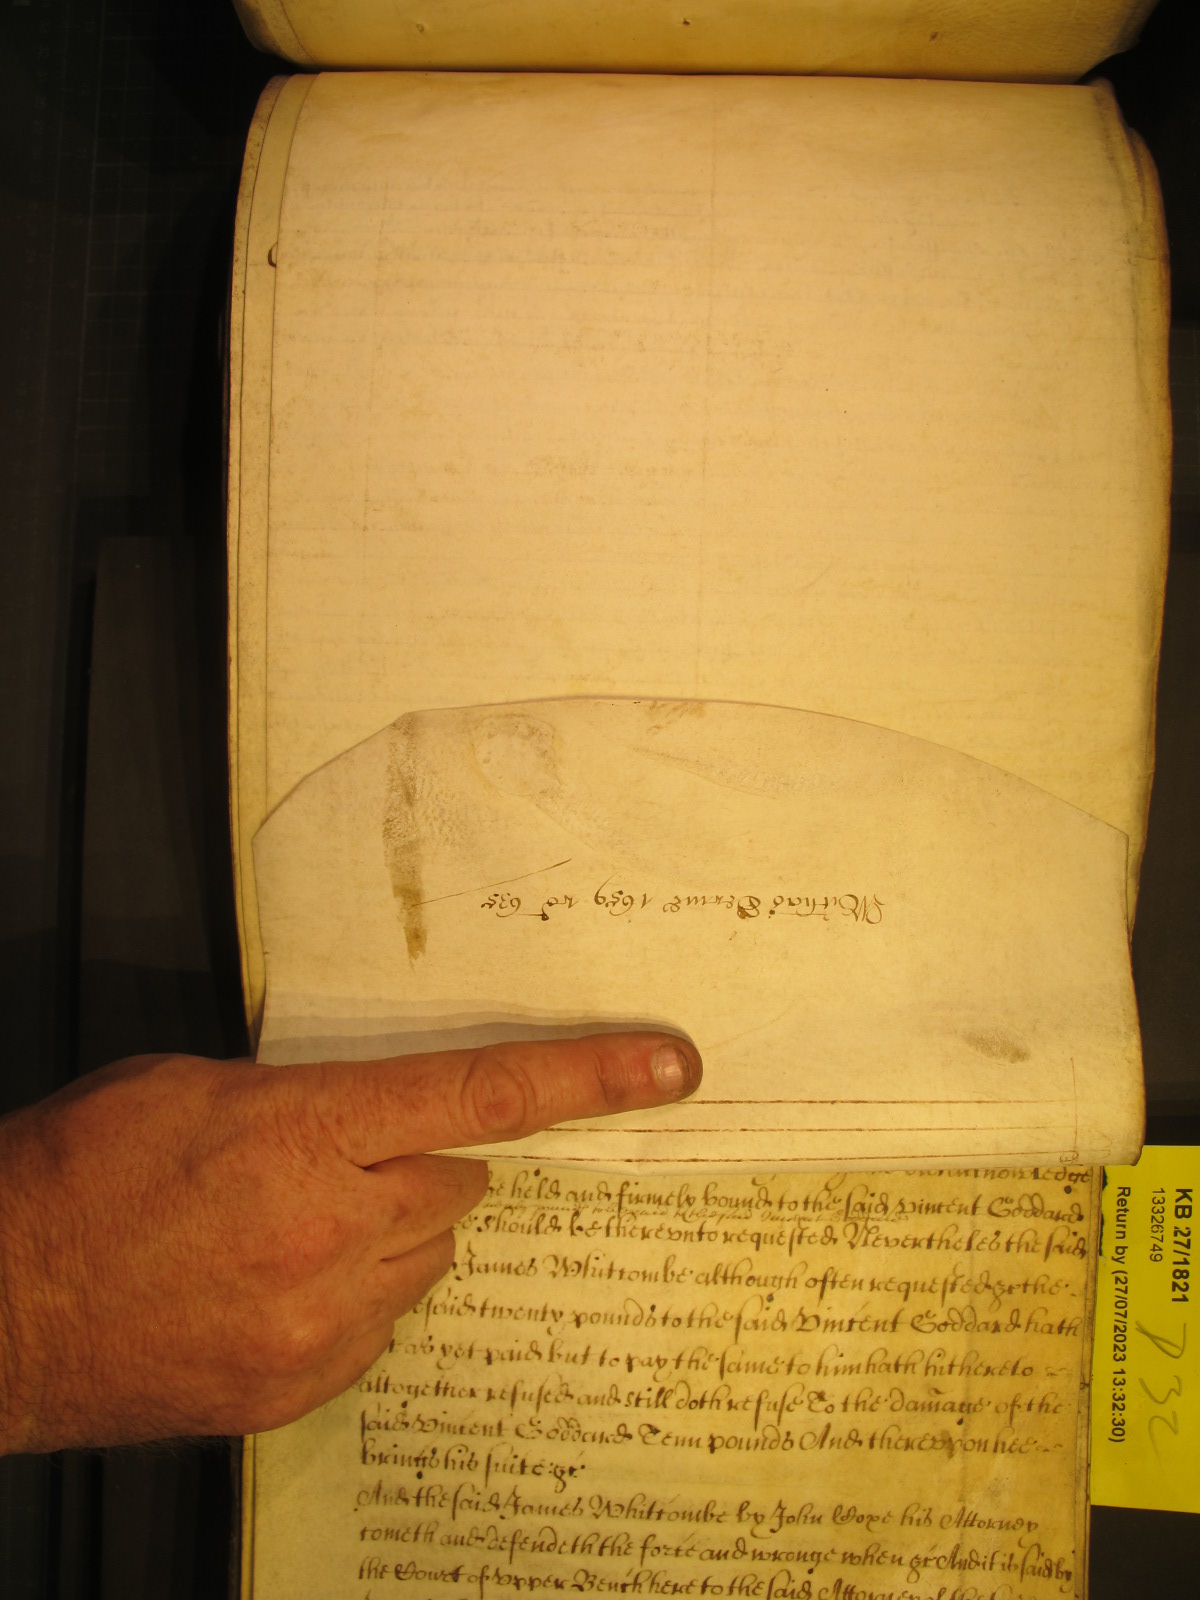 Michas Terme 1659 ro 635
acknowledge
be held and firmely bound to the said Vincent Goddard
should be therevnto requested Nevertheles the said
James Whittcombe although often requested &c the
said twenty pounds to the said Vincent Goddard hath
as yet paid but to pay the same to him hath hithereto
altogether refused and still doth refuse To the damage of the
said Vincent Goddard Tenn pounds And therevpon hee
brings his suite &c
And the said James Whittcombe by John his Attorney
cometh and defendeth the force and wronge when &c And it is said by
the Court of vpper Bench here to the said Attorney of the
KB 27/1821
13326749
Return by (27/07/2023 13:32:30)